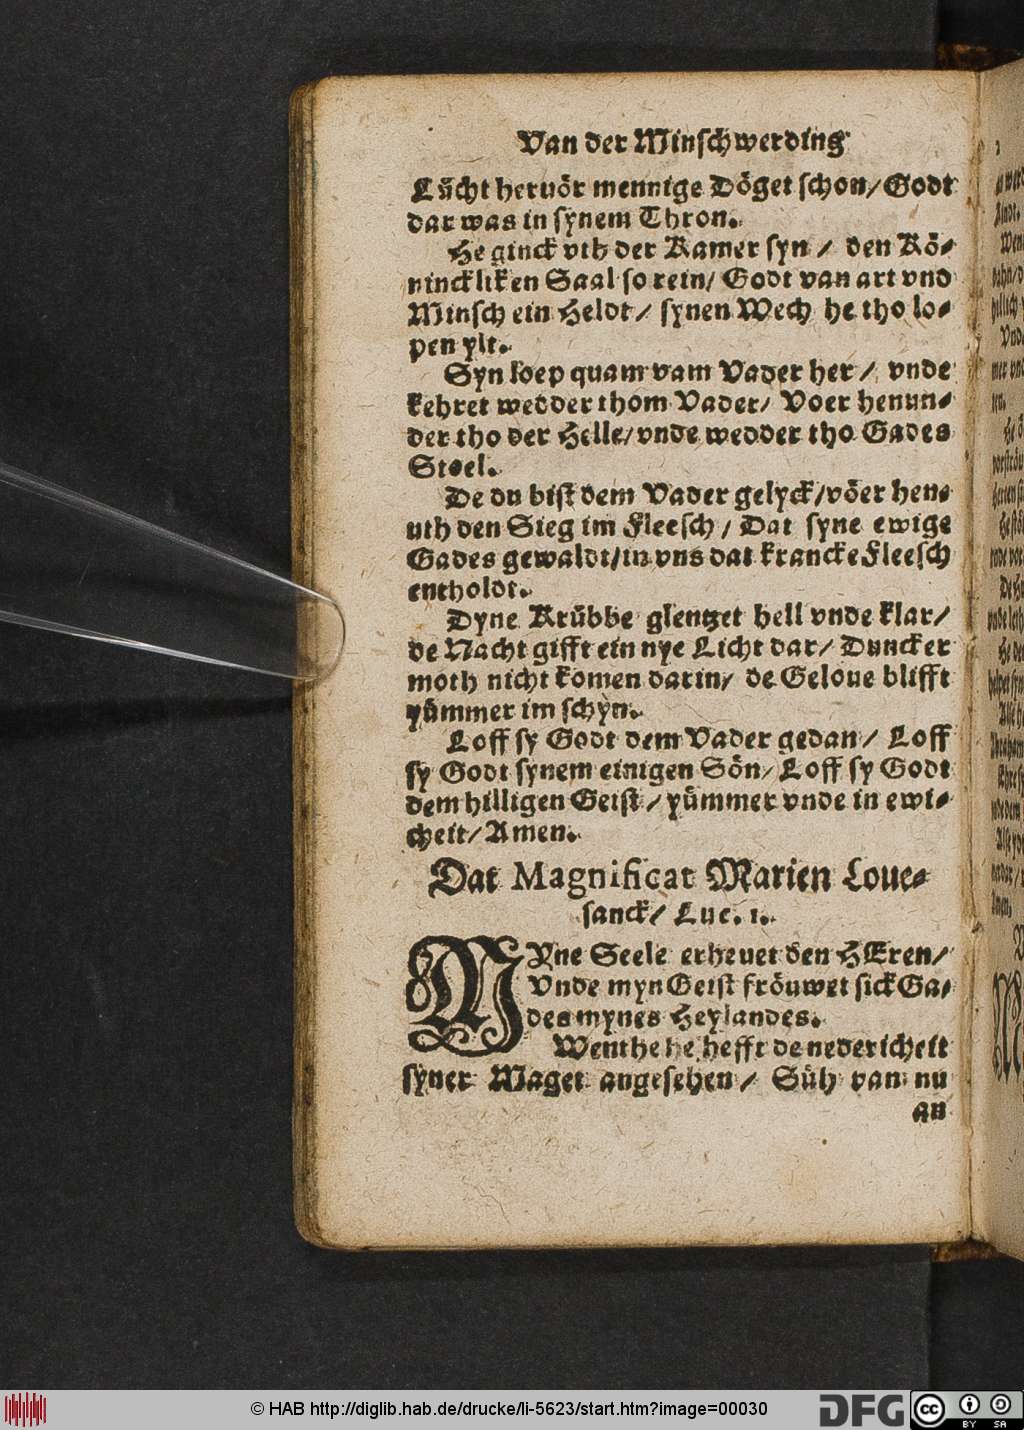 Van der Minschwerding
Lücht heruör mennige Döget schon/ Godt
dar was in synem Thron.
He ginck vth der Kamer syn / den Kö-
nincklikен Saal so rein/ Godt van art vnd
Minsch ein Heldt/ synen Wech he tho lo-
pen ylt.
Syn loep quam vam Vader her / vnde
kehret wedder thom Vader/ Voer henun-
der tho der Helle/ vnde wedder tho Gades
Stoel.
De du bist dem Vader gelyck/ vöer hen-
uth den Sieg im Fleesch / Dat syne ewige
Gades gewaldt/ in vns dat krancke Fleesch
entholdt.
Dyne Krübbe glentzet hell vnde klar/
de Nacht gifft ein nye Licht dar/ Duncker
moth nicht komen darin/ de Geloue blifft
yümmer im schyn.
Loff sy Godt dem Vader gedan/ Loff
sy Godt synem einigen Sön/ Loff sy Godt
dem hilligen Geist/ yümmer vnde in ewi-
cheit/ Amen.
Dat Magnificat Marien Loue-
sanck/ Luc. 1.
MYne Seele erheuet den HEren/
Vnde myn Geist fröuwet sick Ga-
des mynes Heylandes.
Wenthe he hefft de nedericheit
syner Maget angesehen/ Süh van nu
an
© HAB http://diglib.hab.de/drucke/li-5623/start.htm?image=00030
DFG
cc
BY SA